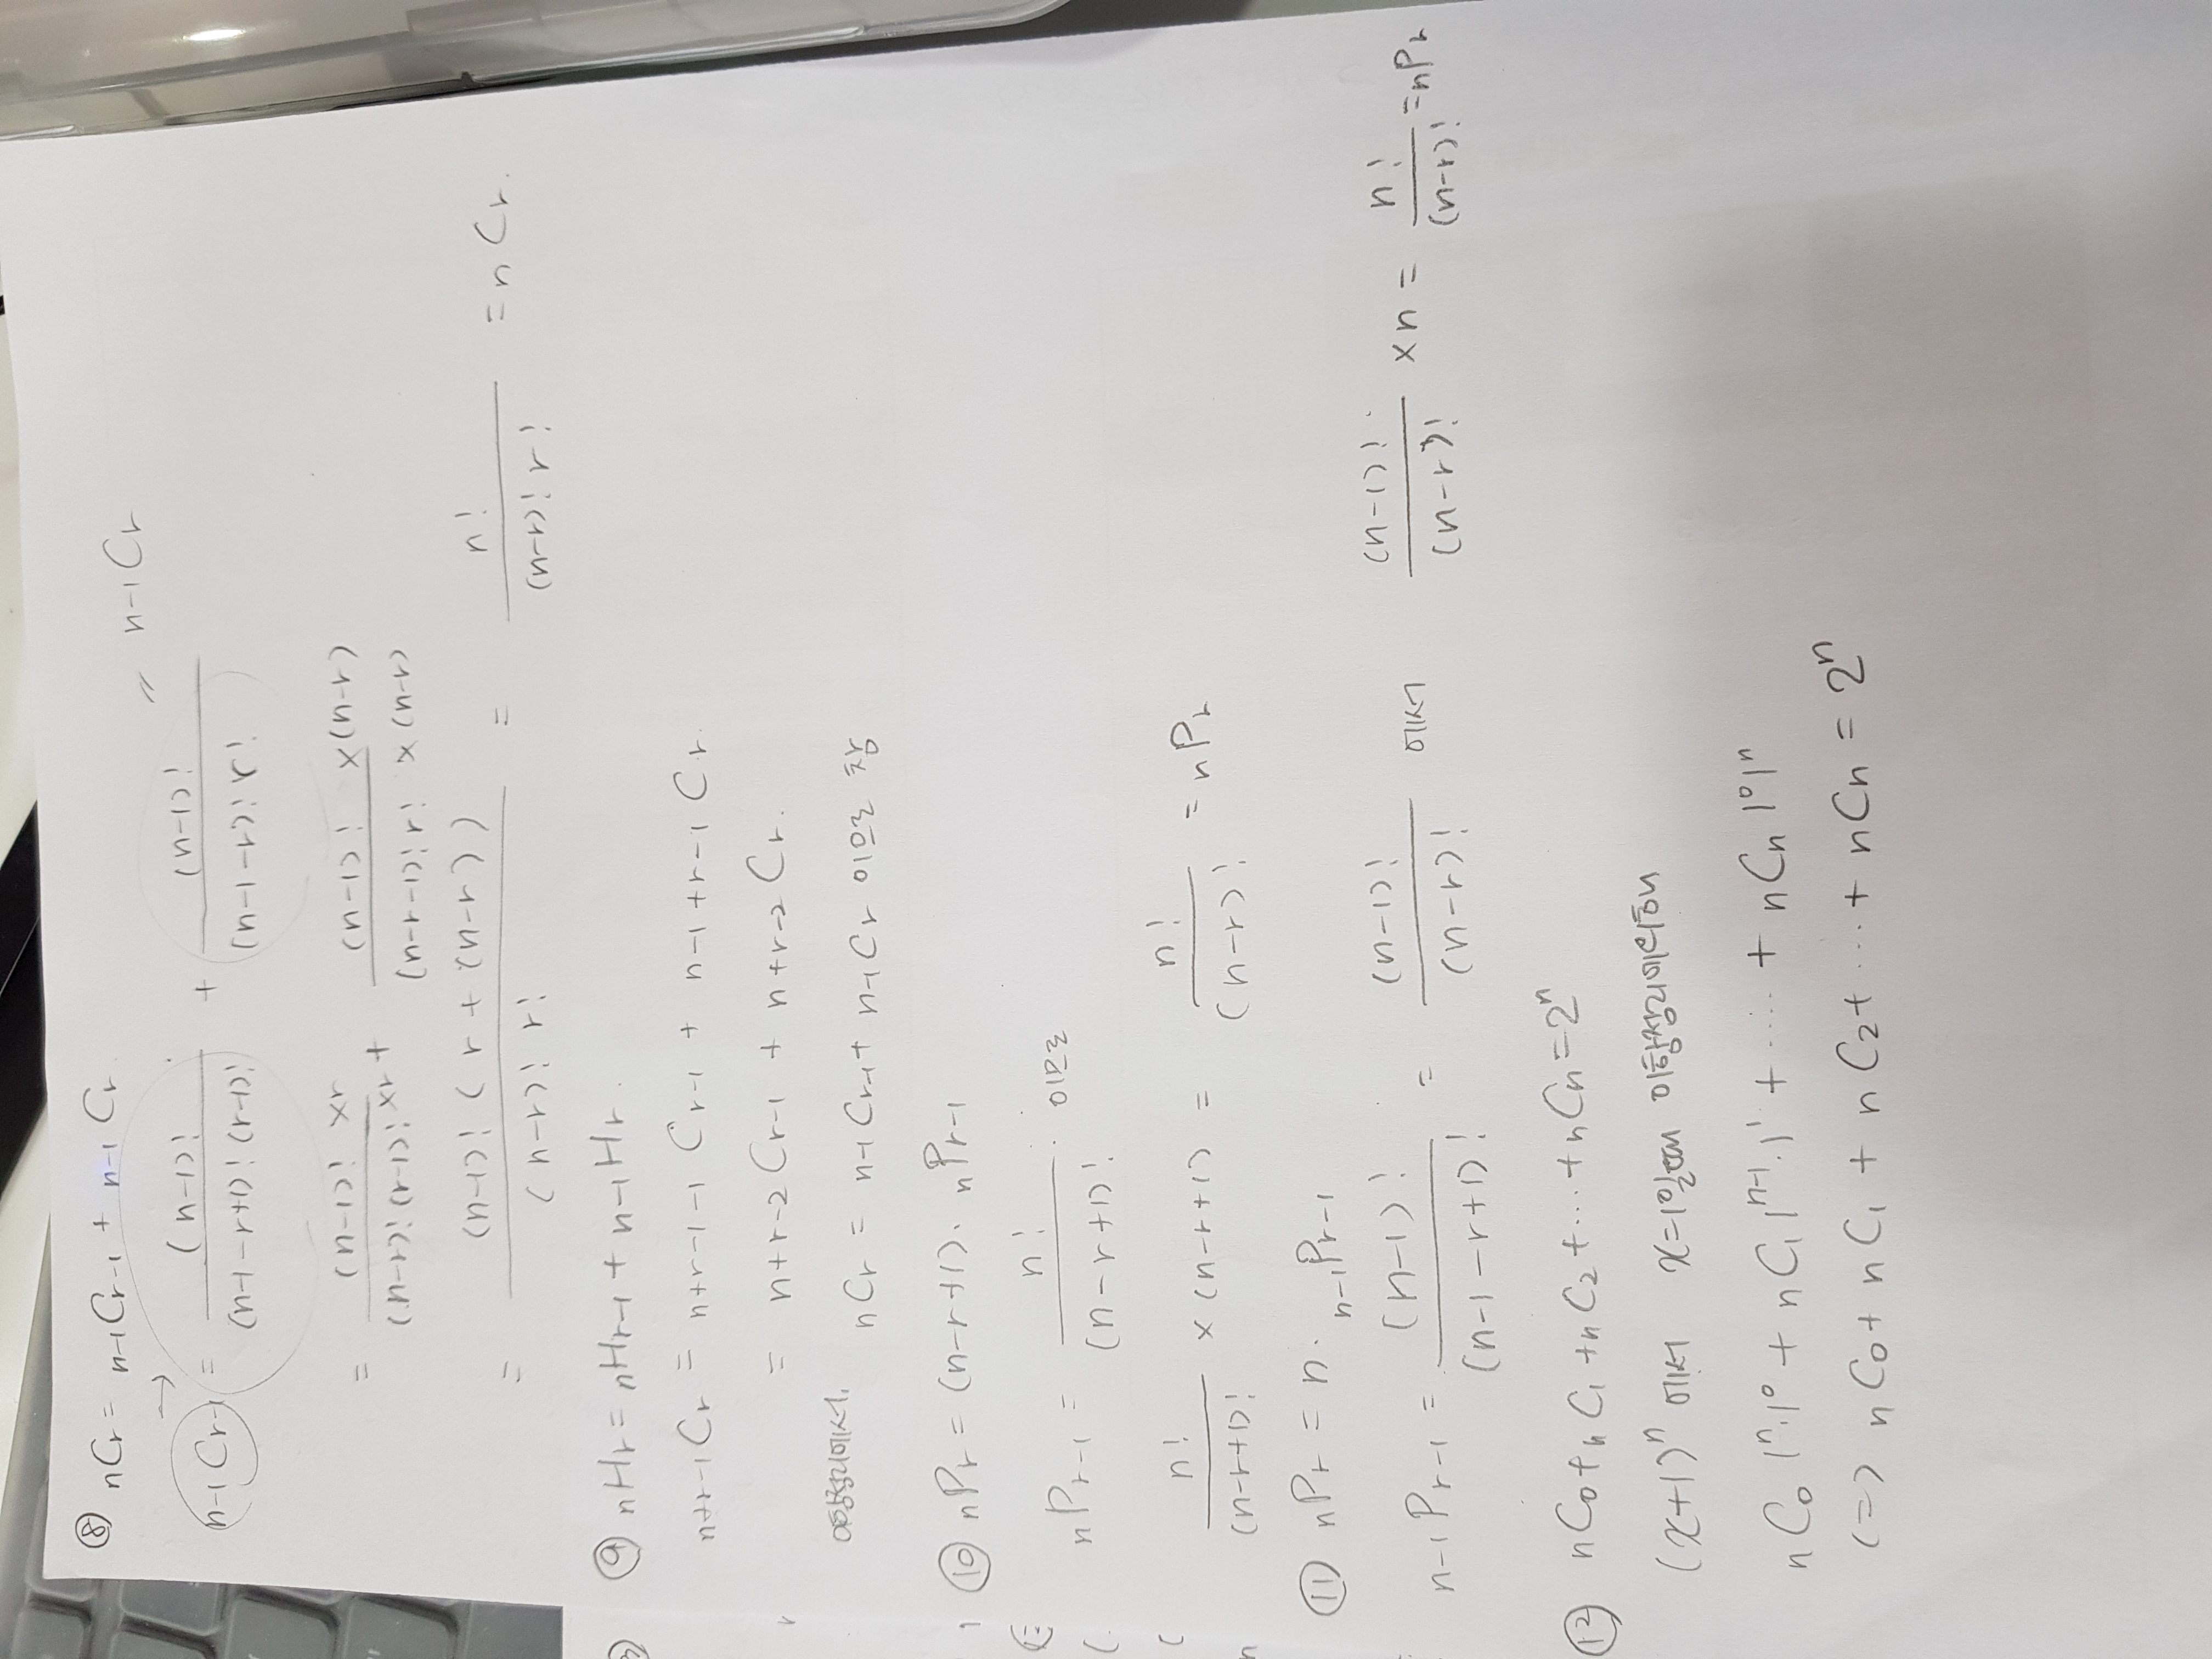 ⑧ nCr = n-1Cr-1 + n-1Cr
→ = n-1Cr
n-1Cr-1 = (n-1)! / (n-1-r+1)! (r-1)! + (n-1)! / (n-1-r)! r!
= (n-1)! ×r / (n-r)! (r-1)! ×r + (n-1)! ×(n-r) / (n-r-1)! r! ×(n-r)
= (n-1)! ( r + (n-r) ) / (n-r)! r! = n! / (n-r)! r! = nCr.
⑨ nHr = nHr-1 + n-1Hr.
n+r-1Cr = n+r-1-1Cr-1 + n-1+r-1Cr.
= n+r-2Cr-1 + n+r-2Cr.
이항정리에서.
nCr = n-1Cr-1 + n-1Cr 이므로 참
⑩ nPr = (n-r+1). nPr-1
nPr-1 = n! / (n-r+1)! 이므로
n! / (n-r+1)! × (n-r+1) = n! / (n-r)! = nPr
⑪ nPr = n. n-1Pr-1
n-1Pr-1 = (n-1)! / (n-1-r+1)! = (n-1)! / (n-r)! 에서 (n-1)! / (n-r)! ×n = n! / (n-r)! = nPr
⑫ nC0 + nC1 + nC2 + ... + nCn = 2ⁿ
(x+1)ⁿ 에서 x=1일때 이항정리에의해
nC0 1ⁿ·1⁰ + nC1 1ⁿ⁻¹·1¹ + ..... + nCn 1⁰1ⁿ
(=) nC0 + nC1 + nC2 + ... + nCn = 2ⁿ